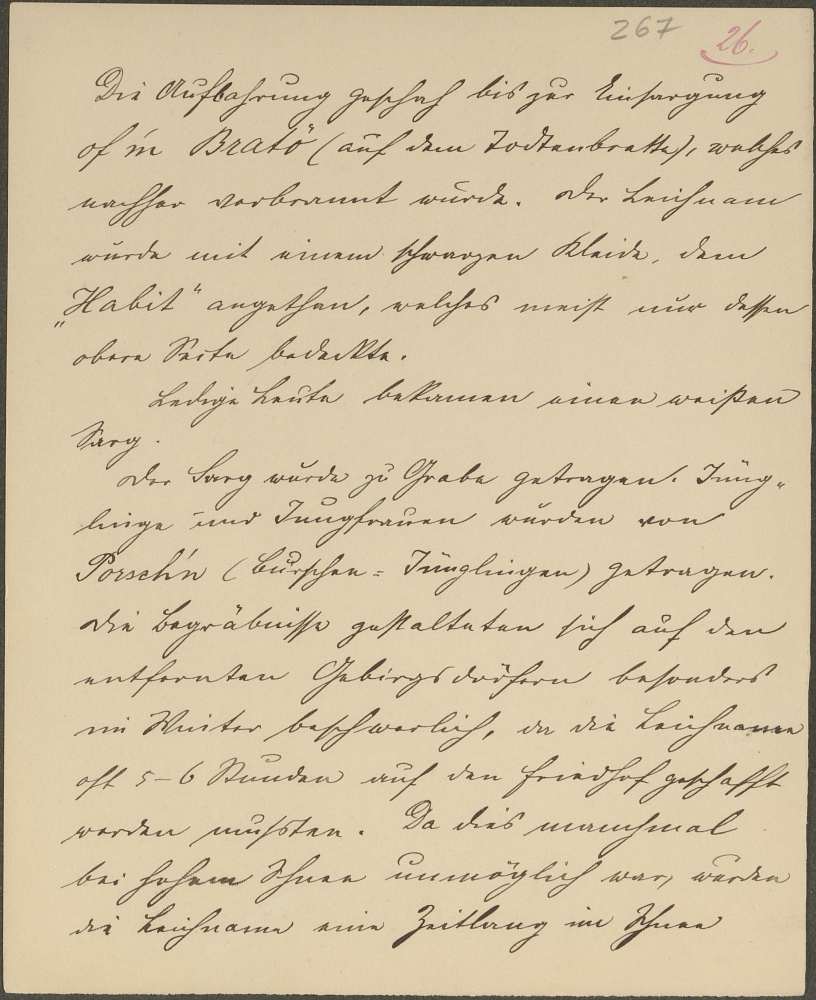 267 26.
Die Aufbahrung geschah bis zur Einsargung
of'm Bratö (auf dem Todtenbrette), welches
nachher verbrannt wurde. Der Leichnam
wurde mit einem schwarzen Kleide, dem
„Habit“ angethan, welches meist nur dessen
obere Seite bedeckte.
Ledige Leute bekamen einen weißen
Sarg.
Der Sarg wurde zu Grabe getragen. Jüng-
linge und Jungfrauen wurden von
Porsch'n (Burschen = Jünglingen) getragen.
Die Begräbnisse gestalteten sich auf den
entfernten Gebirgsdörfern besonders
im Winter beschwerlich, da die Leichname
oft 5–6 Stunden auf den Friedhof geschafft
werden mußten. Da dies manchmal
bei hohem Schnee unmöglich war, wurden
die Leichname eine Zeitlang im Schnee